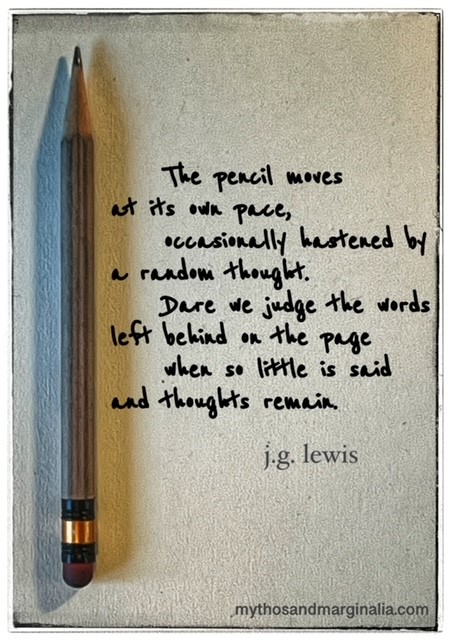 The pencil moves
at its own pace,
occasionally hastened by
a random thought.
Dare we judge the words
left behind on the page
when so little is said
and thoughts remain.
j.g. lewis
mythosandmarginalia.com